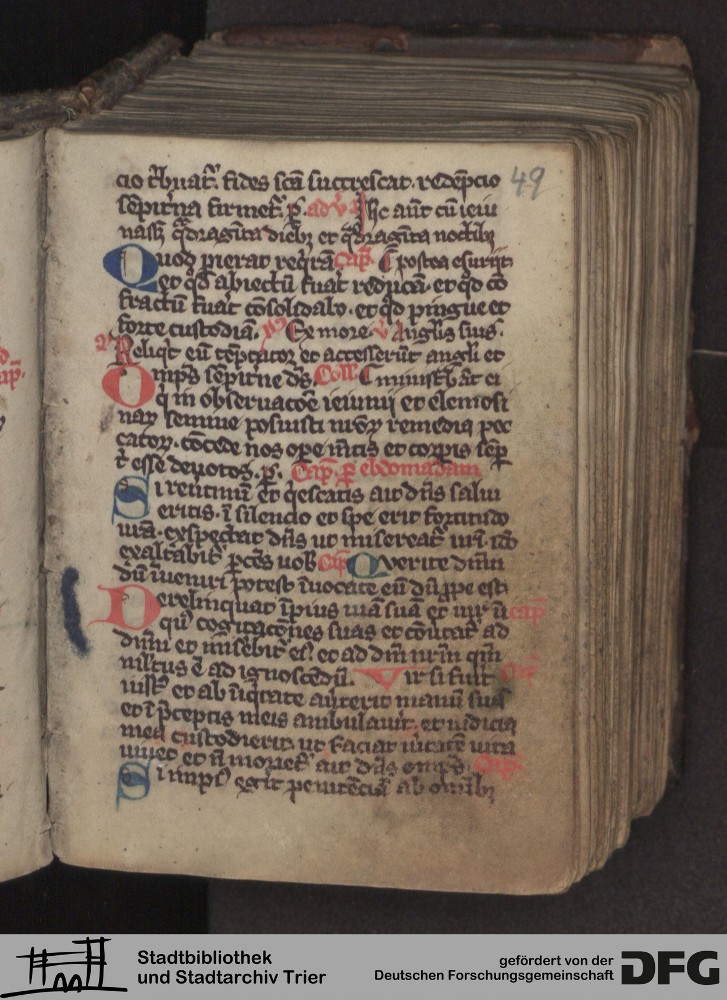 cio t͛buat᷑. fides sc̄a succrescat. redēpcio 49
sēpit̄na firmet᷑. p̲. ad v̄. Hic aūt cū ieiu
nass; q̄dragīta dieb; et q̄dragīta noctib;
Quod pierat reqrā. Cap̄. ⁋ postea esurijt.
et qd̄ abiectū fuat reducā. et qd̄ cō
fractū fuat cōsolidabo. et qd̄ pingue et
forte custodiā. Ex more. v̄ Anglis suis.
Reliqt eū tēptator et accesserūt angli et
Omp̄s sēpit̄ne ds̄. Coll̄. ⁋ minist̄bāt ei
q̇ in observacōe ieiunij et elemosi
nar᷑ semine posuisti nr̄or᷑ remedia pec
cator᷑. cōcede nos ope mētis et corp̄is sēp̲
t̄ esse devotos. p̲. Cap̄. p̲ ebdomadam
Si revtimī et q̇escatis ait dn̄s salui
eritis. ī silencio et spe erit fortitudo
vr̄a. exspectat dn̄s ut misereat᷑ vr̄i. iō
exaltabit᷑ p̲cēs uob̄ Cap̄ Querite dn̄m
dū īveniri potest īvocate eū dū ꝓpe est
Derelinquat īpius viā suā et vir ī Cap̄
qu᷒ cogitacōnes suas et cōūtat᷑ ad
dn̄m et misēbit᷑ ei᷒. et ad dm̄ nr̄m qm̄
mltus ē ad ignoscēdū. Vir si fuīt Cap̄
iust᷒ et ab īiq̇tate aūterit manū suā
et ī p̄ceptis meis ambulauit. et iudicia
mea custodierit. ut faciat ūitatē vita
vivet et n̄ moriet᷑ ait dn̄s omp̄s. Cap̄.
Si impi᷒ egīt penitēciā ab omīb;
Stadtbibliothek
und Stadtarchiv Trier
gefördert von der
Deutschen Forschungsgemeinschaft DFG